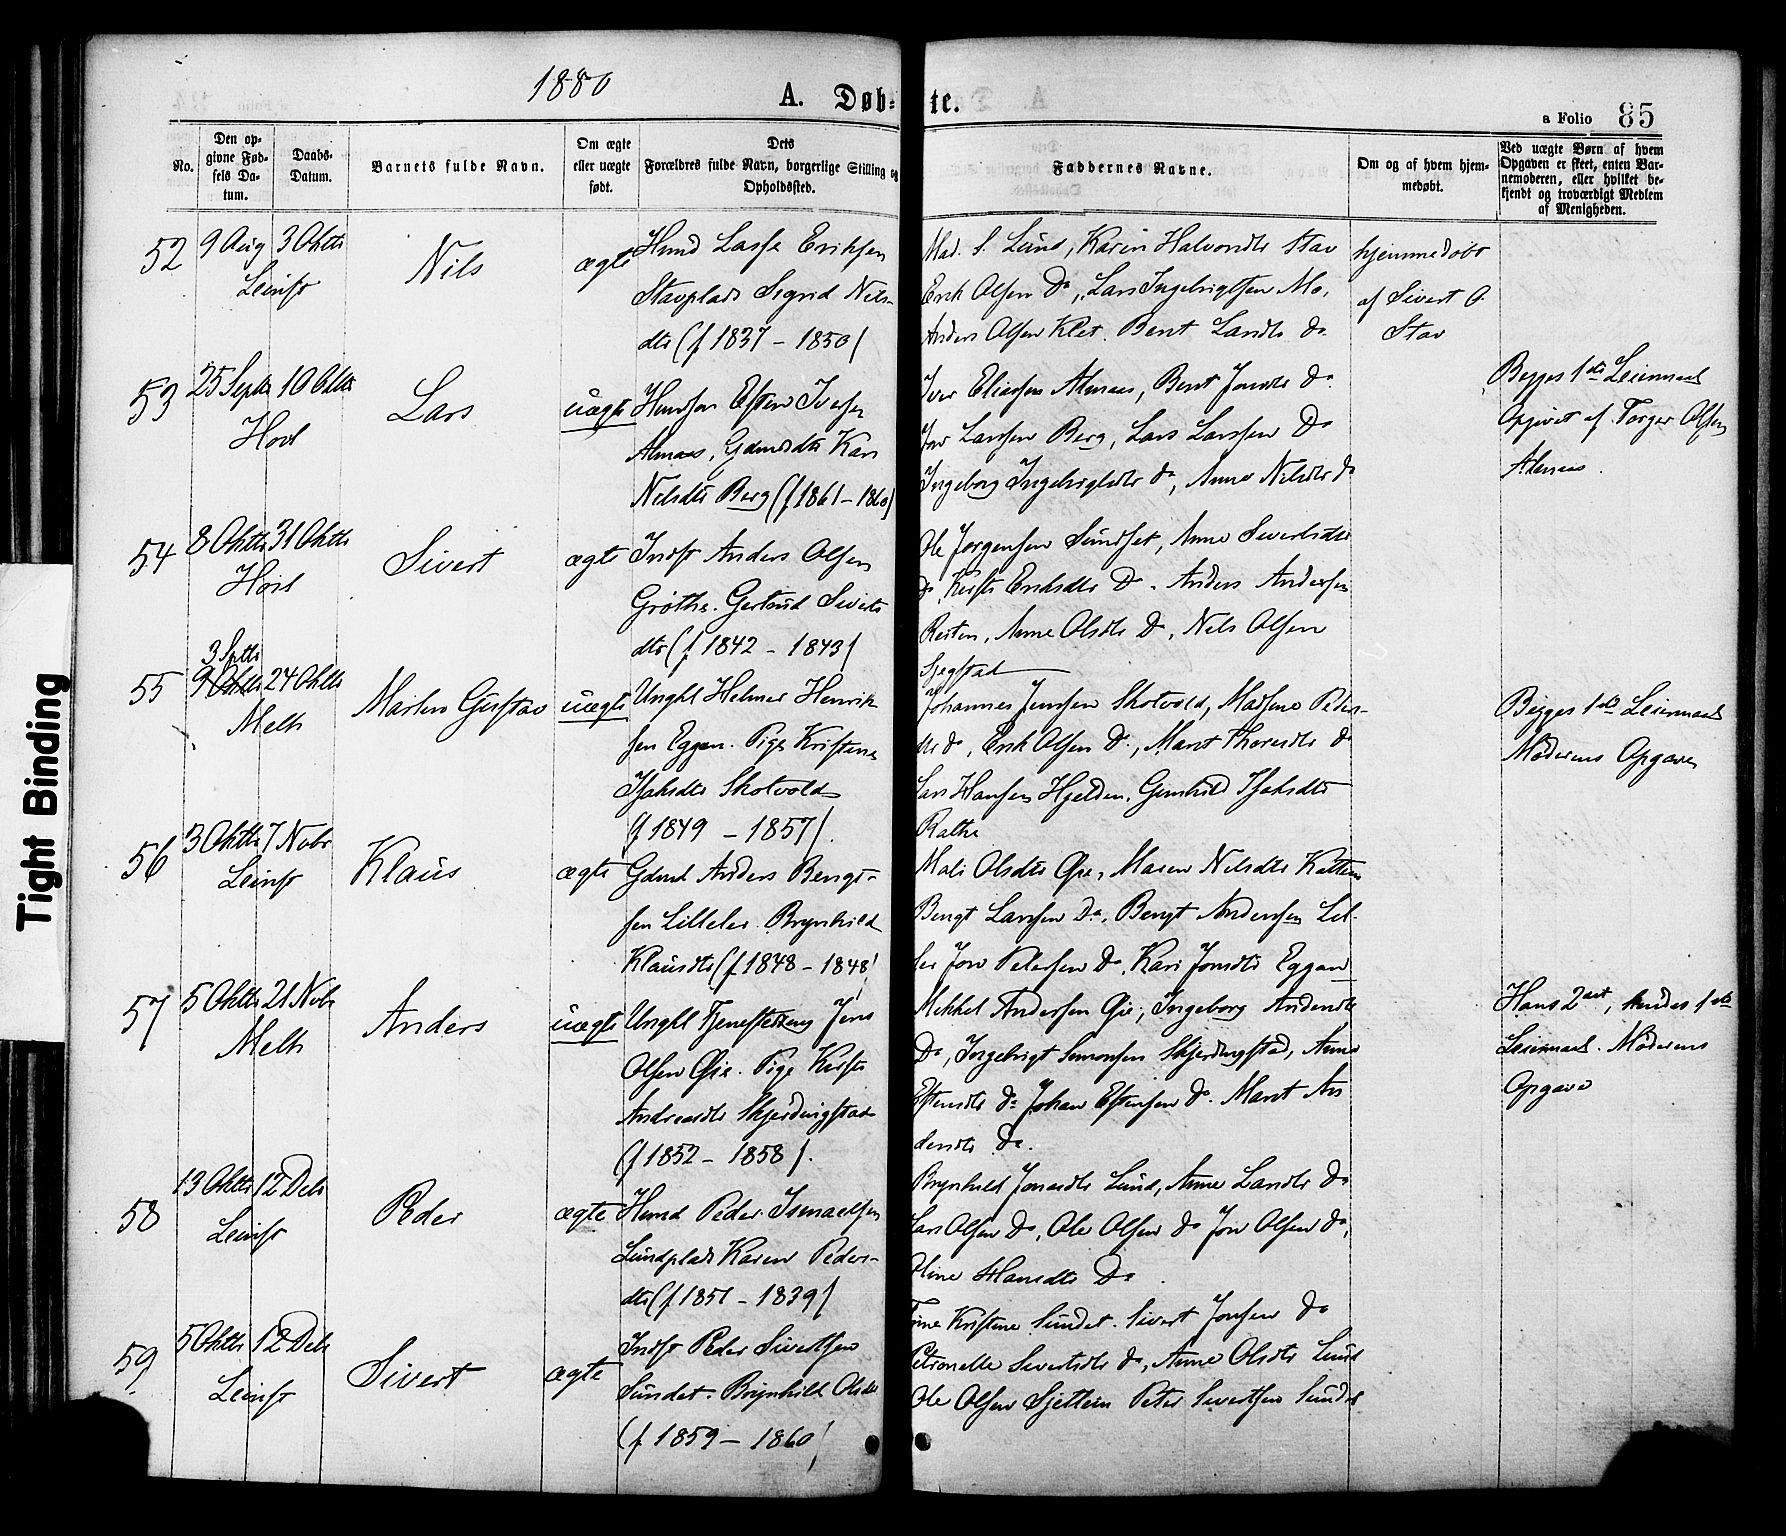 1880
A. Døb=te.
a Folio 85
No.
Den op-
givne Fød-
sels Da-
tum.
Daabs-
Datum.
Barnets fulde Navn.
Om ægte
eller uægte
født.
Dets
Forældres fulde Navn, borgerlige Stilling og
Opholdssted.
Faddernes Navne.
Om og af hvem hjem-
medøbt.
Ved uægte Børn af hvem
Opgaven er skeet, enten Bar-
nemoderen, eller hvilket be-
kjendt og troværdigt Medlem
af Menigheden.
52 9 Aug 3 Oktb
Leinst
Nils
ægte
Hmd Lasse Eriksen
Stavplads Sigrid Nils-
dtr (f 1837 - 1850)
Mad. S. Lund, Karen Halvordtr Stav
Erik Olsen Do, Lars Ingebrigtsen Mo,
Anders Olsen Klet. Berit Larsdtr Do
hjemmedøbt
af Sivert O.
Stav
53 25 Septb 10 Oktb
Hovl
Lars
uægte
Esten Iversen
Almaas, Gdmdsdtr Kari
Nilsdtr Berg (f 1861 - 1860)
Iver Eliassen Almaas, Berit Jonsdtr Do
Larssen Berg, Lars Larssen Do
Ingeborg Ingebrigtsdtr Do, Anne Nilsdtr Do
Begges 1ste Leiermaal
Opgivet af Torger Olsen
Almaas.
54 8 Oktb 31 Oktb
Sivert
ægte
Indst Anders Olsen
Grøthe. Gertrud Siverts
dtr (f 1842 - 1843)
Ole Jørgensen Sundset, Anne Sivertsdtr
Do, Kirsti Eriksdtr Do. Anders Andersen
Rosten, Anne Olsdtr Do, Nils Olsen
Sjegstad
3 Septb
55 9 Oktb 24 Oktb
Melh
Marten Gustav
uægte
Unghl Helmer Henrik
sen Eggen. Pige Kristine
Isaksdtr Skotvold
(f 1849 - 1857).
Johannes Jenssen Skotvold, Madsene Peders-
dtr Do, Erik Olsen Do, Marit Thoresdtr Do
Lars Hansen Hjelden, Gunhild Isaksdtr
Rathe
Begges 1ste Leiermaal
Moderens Opgave
56 3 Oktb 7 Nobr
Leinst
Klaus
ægte
Gdmd Anders Bengt-
sen Lilleler. Brynhild
Klausdtr (f 1848 - 1848)
Mali Olsdtr Øie, Maren Nilsdtr Kattem
Bengt Larssen Do, Bengt Anderssen Lil-
ler Jon Pederssen Do, Kari Jonsdtr Eggan
57 5 Oktb 21 Nobr
Melh
Anders
uægte
Unghl Tjenestedreng Jens
Olsen Øie. Pige Kirsti
Andreasdtr Skjerdingstad
(f 1852 - 1858).
Mekkel Andersen Øie, Ingeborg Andersdtr
Do, Ingebrigt Simonsen Skjerdingstad, Anne
Estensdtr Do Johan Estensen Do. Marit An
dersdtr Do.
Hans 2det, hendes 1ste
Leiermaal. Moderens
Opgave
58 13 Oktb 12 Debr
Leinst
Peder
ægte
Hmd Peder Ismaelsen
Lundplads Karen Peders-
dtr (f 1851 - 1839)
Brynhild Jonsdtr Lund, Anne Larsdtr Do
Lars Olsen Do, Ole Olsen Do Jon Olsen Do,
Oline Hansdtr Do.
59 5 Oktb 12 Debr
Leinst
Sivert
ægte
Indst Peder Sivertsen
Sundet. Brynhild Olsdtr
(f 1859 - 1860)
Kristine Sundet. Sivert Jonsen Do
Petronelle Sivertsdtr Do, Anne Olsdtr Lund
Ole Olsen Sjetlein Peter Sivertsen Sundet
Tight Binding